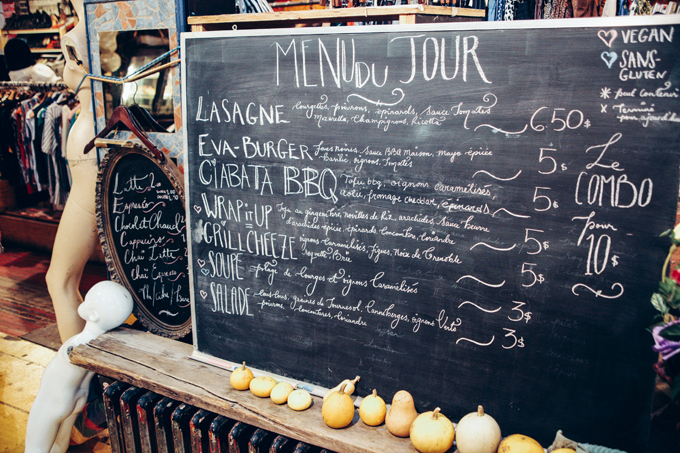 MENU DU JOUR
LASAGNE courgettes, poivrons, épinards, sauce Tomates
Champignons, Ricotta 6.50$
EVA-BURGER sauce BBQ Maison, mayo épicée
Basilic, oignons, Tomates 5$
CIABATA BBQ Tofu bbq, oignons caramélisés,
fromage cheddar, épinards 5$
WRAP it UP Tofu au gingembre, nouilles de Riz, arachides, sauce Beurre
d'arachide épicée, épinards, concombre, coriandre 5$
GRILL CHEEZE oignons caramélisés, figues, Noix de Grenoble
Roquette, Brie 5$
SOUPE de courges et oignons caramélisés 3$
SALADE cous-cous, graines de Tournesol, canneberges, oignons Verts
concombres, coriandre 3$
VEGAN
SANS-
GLUTEN
* peut contenir
x Terminé
pour aujourd'hui
Le
COMBO
Pour
10$
Latté
Espresso
Chocolat Chaud
Cappucino
Chaï Latté
Chaï Epicé